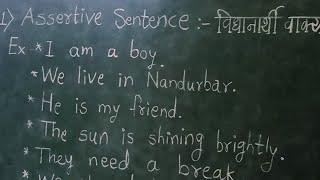 1) Assertive Sentence :- विधानार्थी वाक्य
Ex * I am a boy.
* We live in Nandurbar.
* He is my friend.
* The sun is shining brightly.
* They need a break